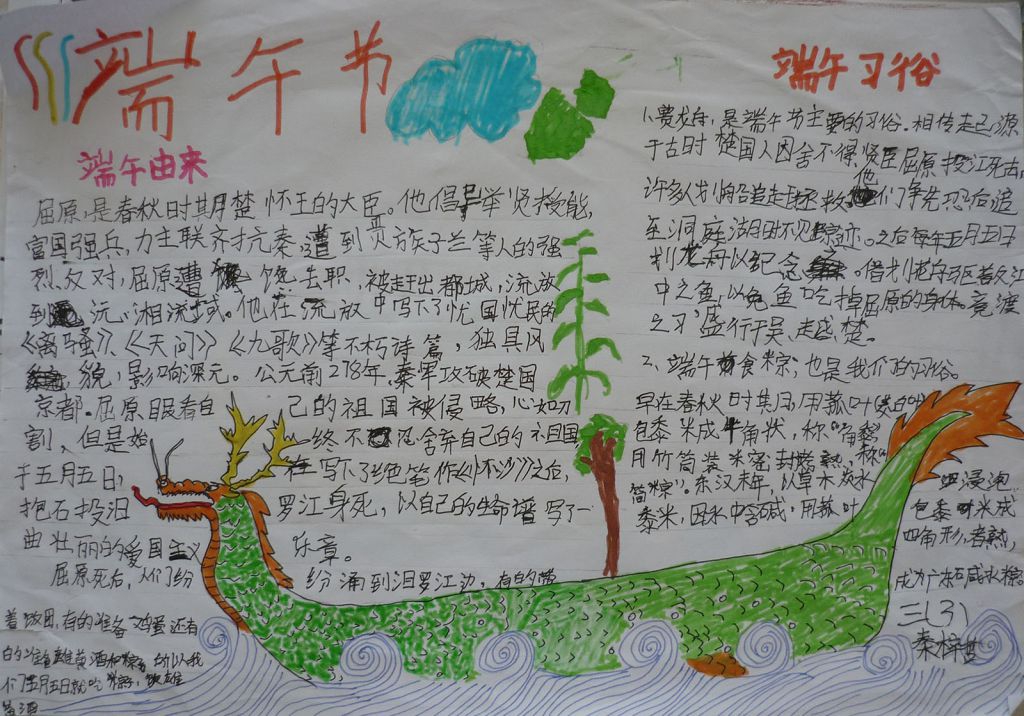 端午节
端午由来
屈原，是春秋时期楚怀王的大臣。他倡导举贤授能，
富国强兵，力主联齐抗秦，遭到贵族子兰等人的强
烈反对，屈原遭馋去职，被赶出都城，流放
到沅、湘流域。他在流放中写下了忧国忧民的
《离骚》、《天问》《九歌》等不朽诗篇，独具风
貌，影响深元。公元前278年，秦军攻破楚国
京都。屈原眼看自己的祖国被侵略，心如刀
割，但是始终不忍舍弃自己的祖国
于五月五日，在写下了绝笔作《怀沙》之后，
抱石投汨罗江身死，以自己的生命谱写了一
曲壮丽的爱国主义乐章。
屈原死后，人们纷纷涌到汨罗江边，有的带
着饭团，有的准备鸡蛋还有
的准备雄黄酒和粽子，所以我
们五月五日就吃粽子，饮雄
黄酒
端午习俗
1、赛龙舟，是端午节主要的习俗。相传起源
于古时楚国人因舍不得贤臣屈原投江死去，
许多人划船追赶拯救。他们争先恐后追
至洞庭湖时不见踪迹。之后每年五月五日
划龙舟以纪念。借划龙舟驱散江
中之鱼，以免鱼吃掉屈原的身体。竞渡
之习，盛行于吴、越、楚。
2、端午食粽，也是我们的习俗。
早在春秋时期，用菰叶
包黍米成牛角状，称“角黍”
用竹筒装米密封烤熟，称“
筒粽”。东汉末年，以草木灰水浸泡
黍米，因水中含碱，用菰叶包黍米成
四角形，煮熟，
成为广东碱水粽
三(3)
秦梓